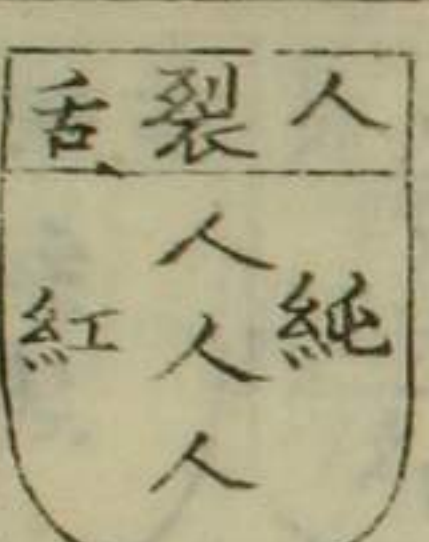 人裂舌
純
人
人
人
紅